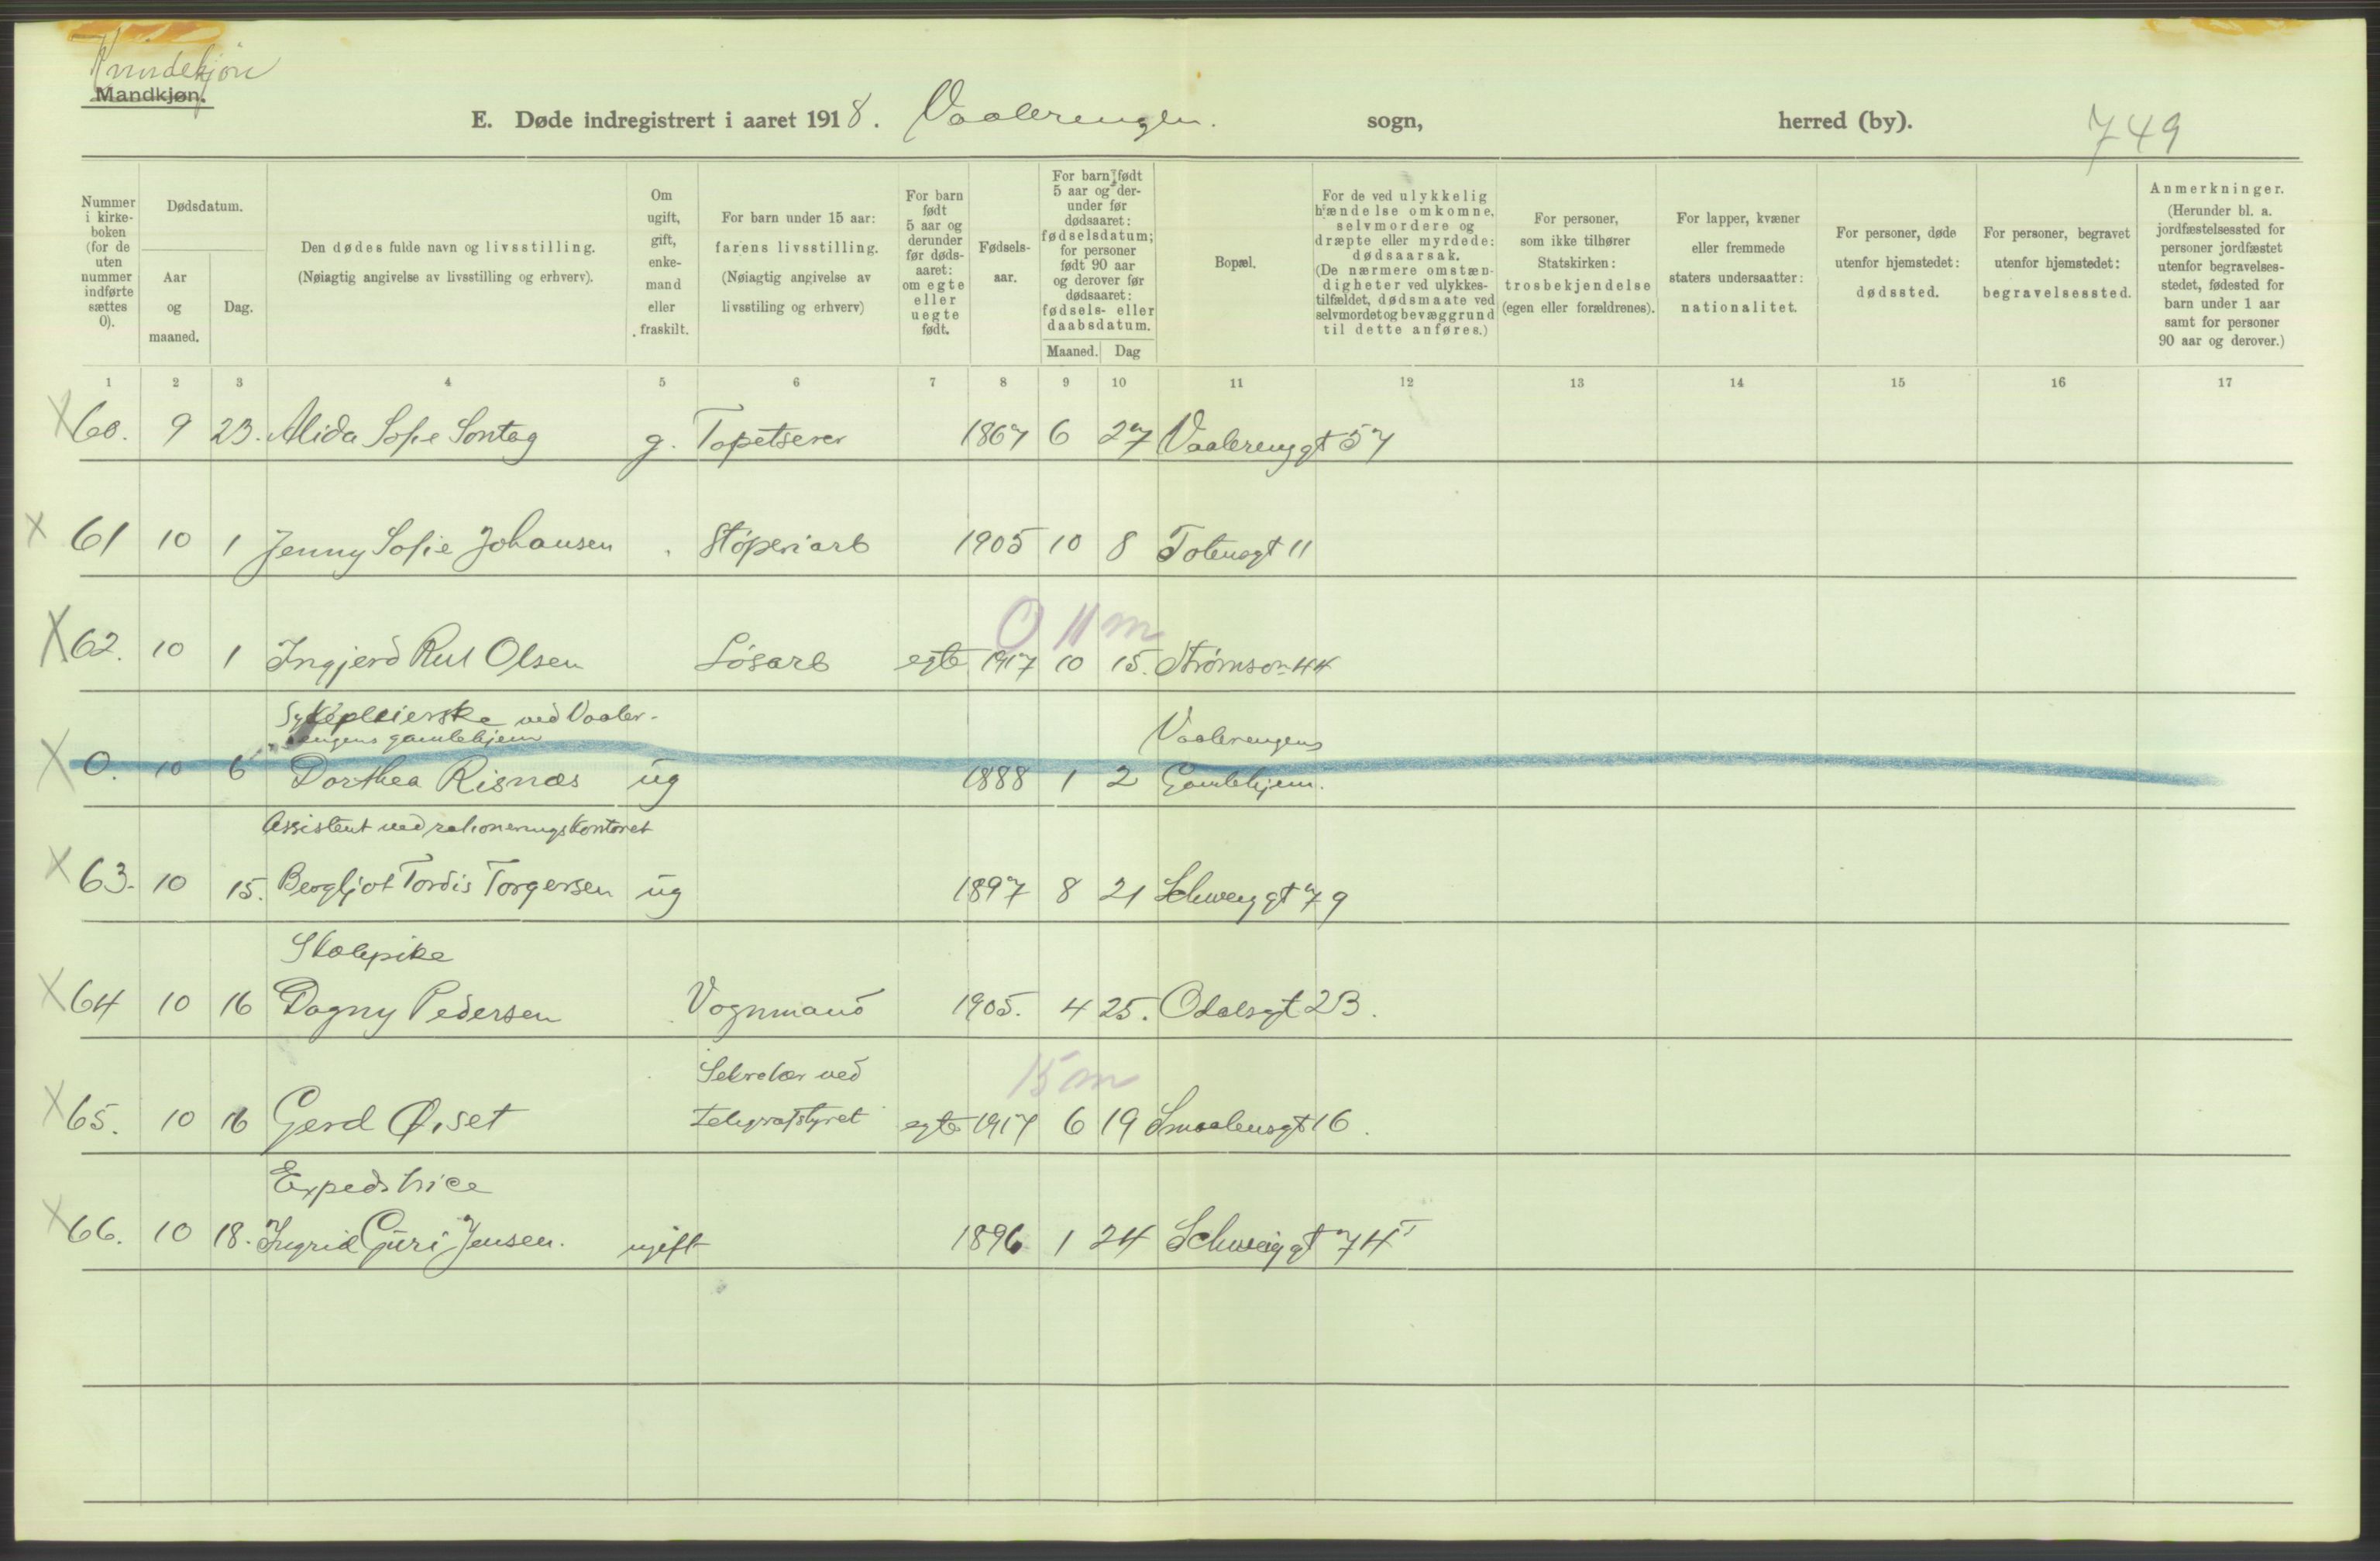 Kvindekjøn
Mandkjøn.
E. Døde indregistrert i aaret 1918. Vaalerengen. sogn, herred (by). 749
Nummer i kirke-boken (for de uten nummer indførte sættes 0).
Dødsdatum.
Aar og maaned.
Dag.
Den dødes fulde navn og livsstilling.
(Nøiagtig angivelse av livsstilling og erhverv).
Om ugift, gift, enke-mand eller fraskilt.
For barn under 15 aar: farens livsstilling.
(Nøiagtig angivelse av livsstiling og erhverv)
For barn født 5 aar og derunder før døds-aaret: om egte eller uegte født.
Fødsels-aar.
For barn født 5 aar og der-under før dødsaaret: fødselsdatum; for personer født 90 aar og derover før dødsaaret: fødsels- eller daabsdatum.
Maaned. Dag
Bopæl.
For de ved ulykkelig hændelse omkomne, selvmordere og dræpte eller myrdede: dødsaarsak.
(De nærmere omstæn-digheter ved ulykkes-tilfældet, dødsmaate ved selvmordet og bevæggrund til dette anføres.)
For personer, som ikke tilhører Statskirken: trosbekjendelse (egen eller forældrenes).
For lapper, kvæner eller fremmede staters undersaatter: nationalitet.
For personer, døde utenfor hjemstedet: dødssted.
For personer, begravet utenfor hjemstedet: begravelsessted.
Anmerkninger.
(Herunder bl. a. jordfæstelsessted for personer jordfæstet utenfor begravelses-stedet, fødested for barn under 1 aar samt for personer 90 aar og derover.)
1 2 3 4 5 6 7 8 9 10 11 12 13 14 15 16 17
X 60. 9 23. Alida Sofie Sontag g. Topetserer 1867 6 27 Vaalerenggt 57
X 61 10 1 Jenny Sofie Johansen Støperiarb 1905 10 8 Totensgt 11
0 11 m
X 62. 10 1 Ingjerd Rut Olsen Løsarb egte 1917 10 15. Strømsv. 44
Sykepleierske ved Vaaler-
engens gamlehjem Vaalerengens
X 0. 10 6 Dorthea Risnæs ug 1888 1 2 Gamlehjem.
Assistent ved rationeringskontoret
X 63. 10 15. Bergljot Tordis Torgersen ug 1897 8 21 Schweiggt 79
Skolepike
X 64 10 16 Dagny Pedersen Vognmand 1905. 4 25. Odalsgt 23.
Sekretær ved 15 m
X 65. 10 16 Gerd Øiset telegrafstyret egte 1917 6 19 Smaalensgt 16.
Expeditrice
X 66. 10 18. Ingrid Guri Jensen. ugift 1896 1 24 Schweiggt 74 I